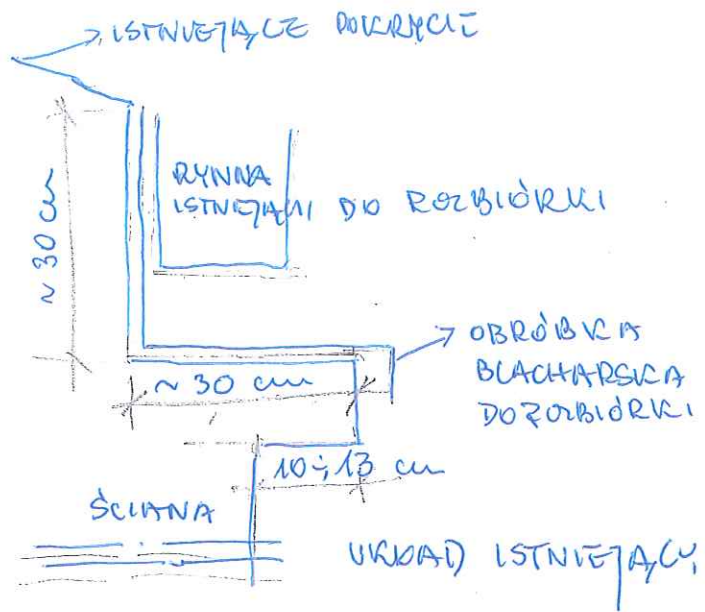 ISTNIEJĄCE POKRYCIE
~ 30 cm
RYNNA
ISTNIEJĄCA DO ROZBIÓRKI
OBRÓBKA
BLACHARSKA
DO ROZBIÓRKI
~ 30 cm
10÷13 cm
ŚCIANA
UKŁAD ISTNIEJĄCY